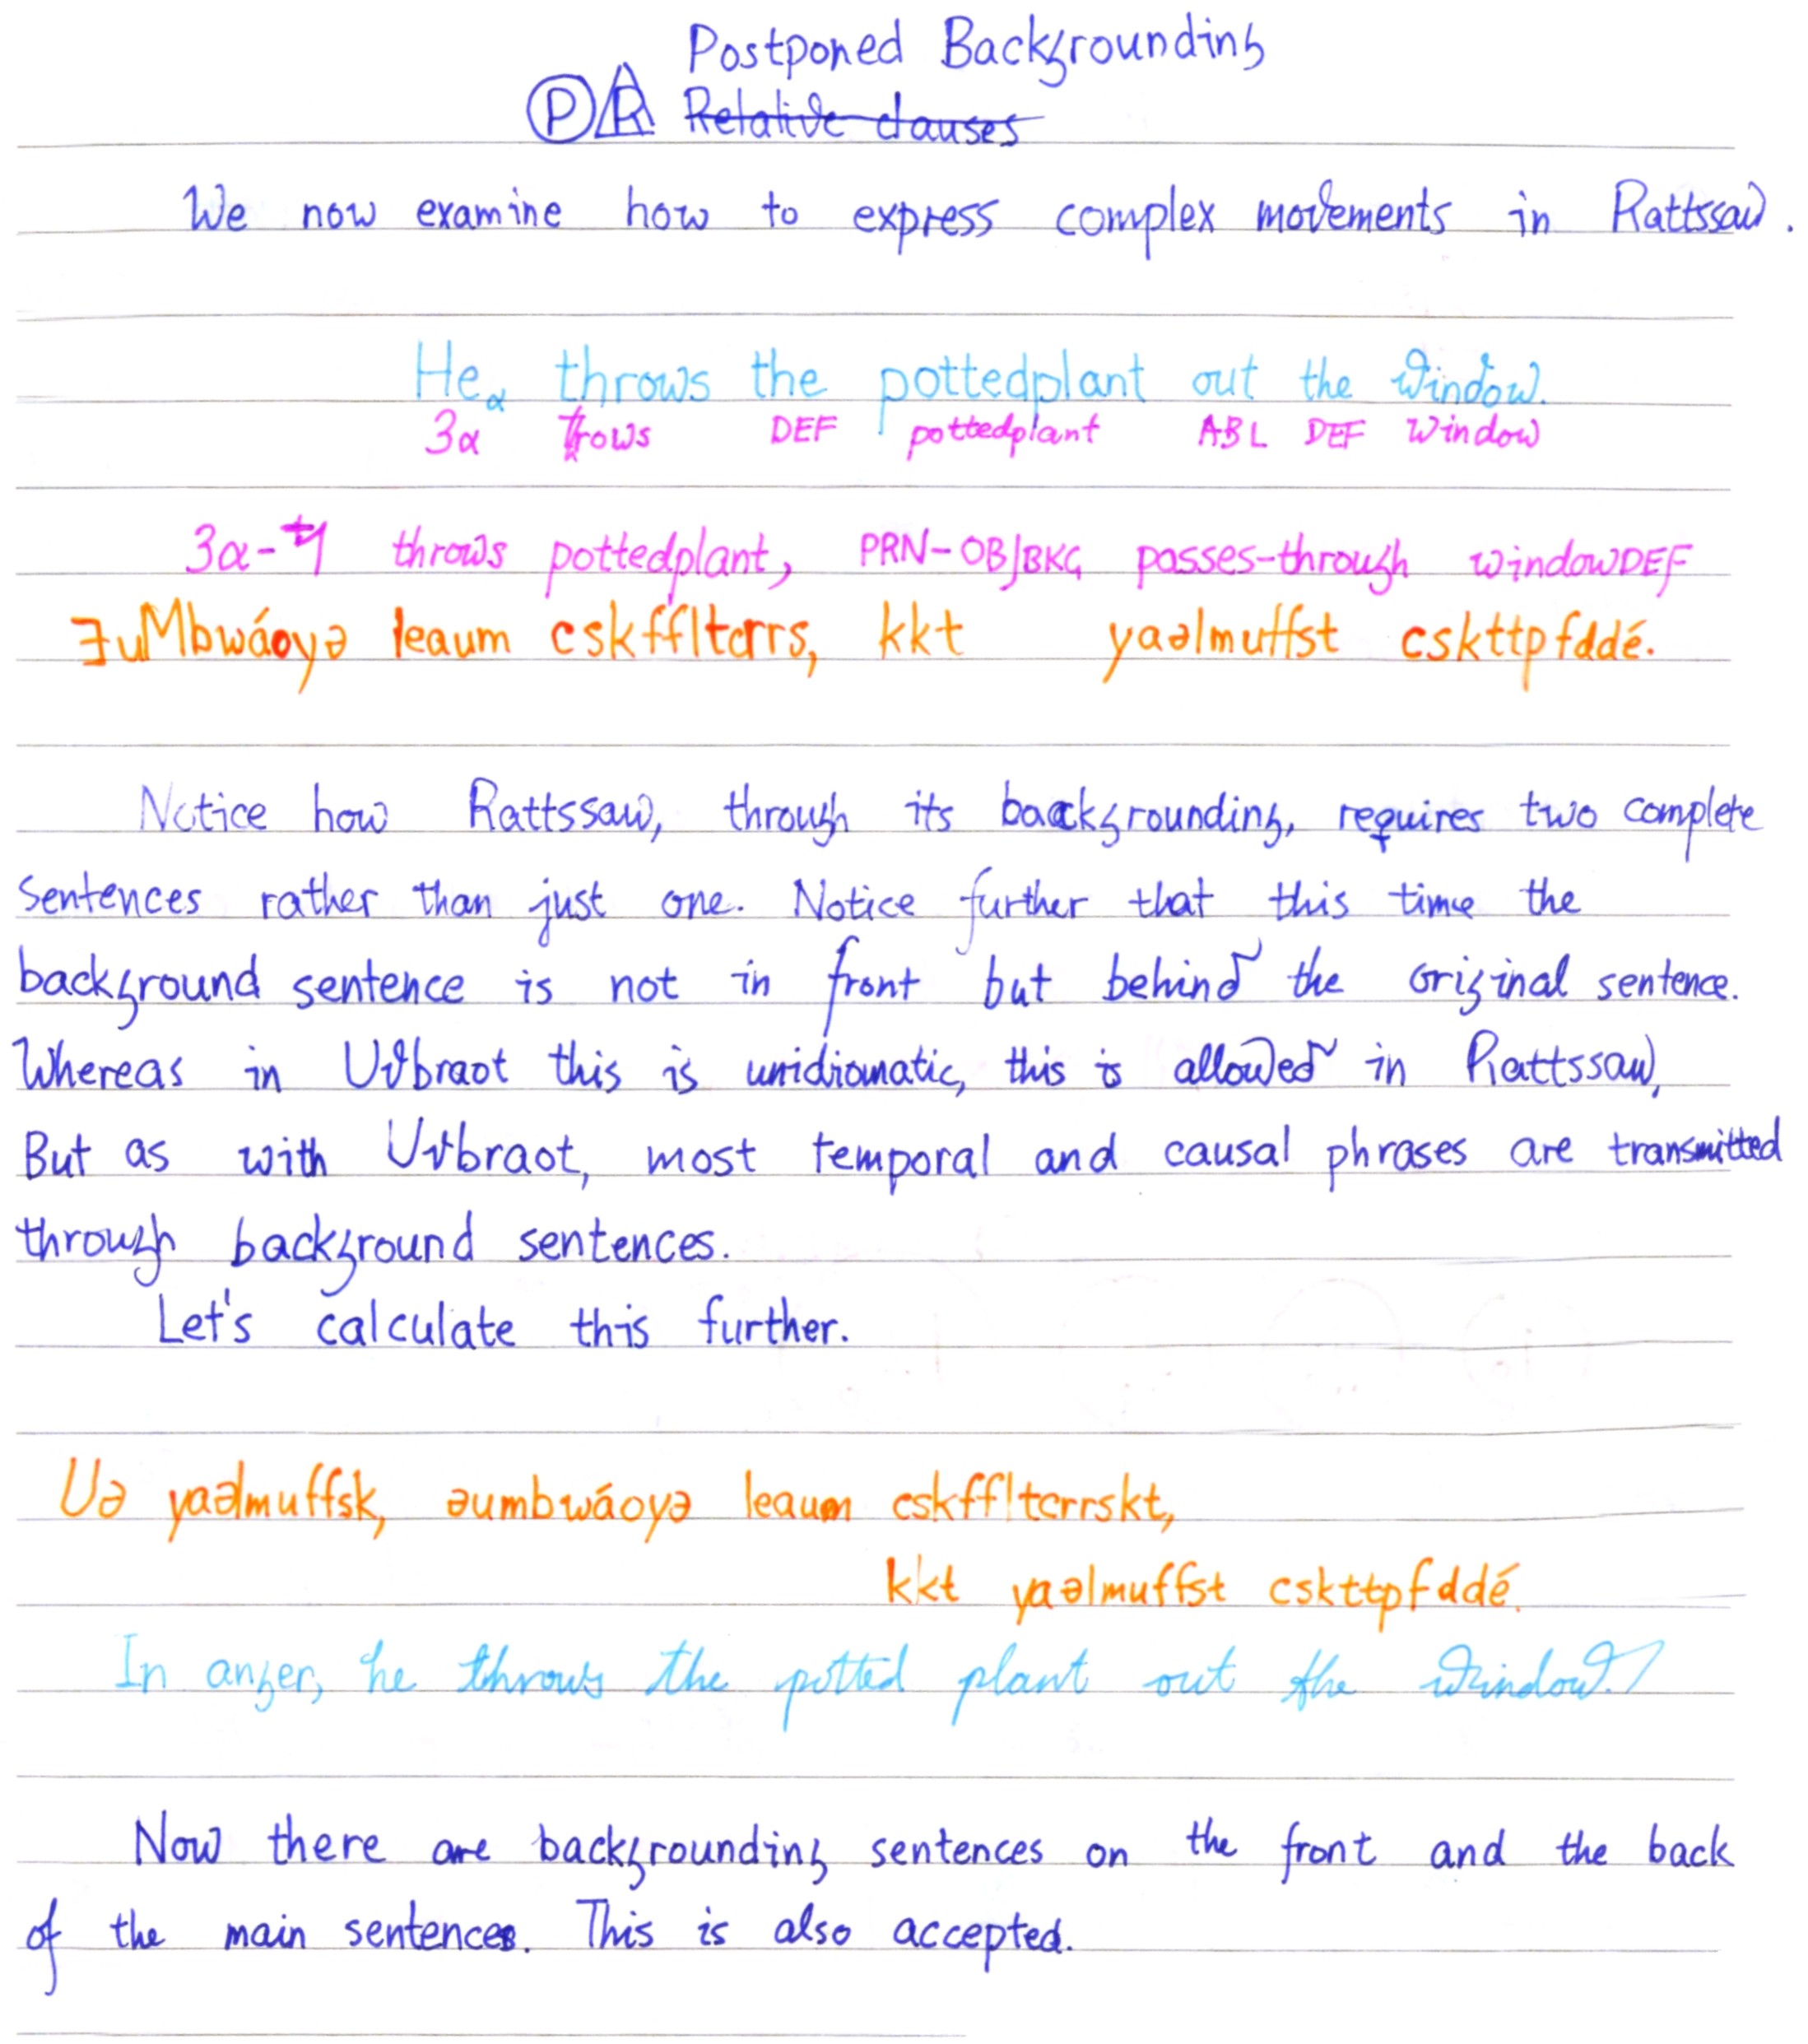 Postponed Backgrounding
P R Relative clauses
We now examine how to express complex movements in Rattssaw.
He α throws the pottedplant out the window.
3α throws DEF pottedplant ABL DEF window
throws pottedplant, PRN-OBJBKG passes-through windowDEF
ƎuMbwáoyə leaum cskffltcrrs, kkt yaəlmuffst cskttpfddé.
Notice how Rattssaw, through its backgrounding, requires two complete
sentences rather than just one. Notice further that this time the
background sentence is not in front but behind the original sentence.
Whereas in this is unidiomatic, this is allowed in Rattssaw,
But as with most temporal and causal phrases are transmitted
through background sentences.
Let's calculate this further.
Uə yaəlmuffsk, əumbwáoyə leaum cskffltcrrskt,
kkt yaəlmuffst cskttpfddé.
In anger, he throws the potted plant out the window.
Now there are backgrounding sentences on the front and the back
of the main sentences. This is also accepted.